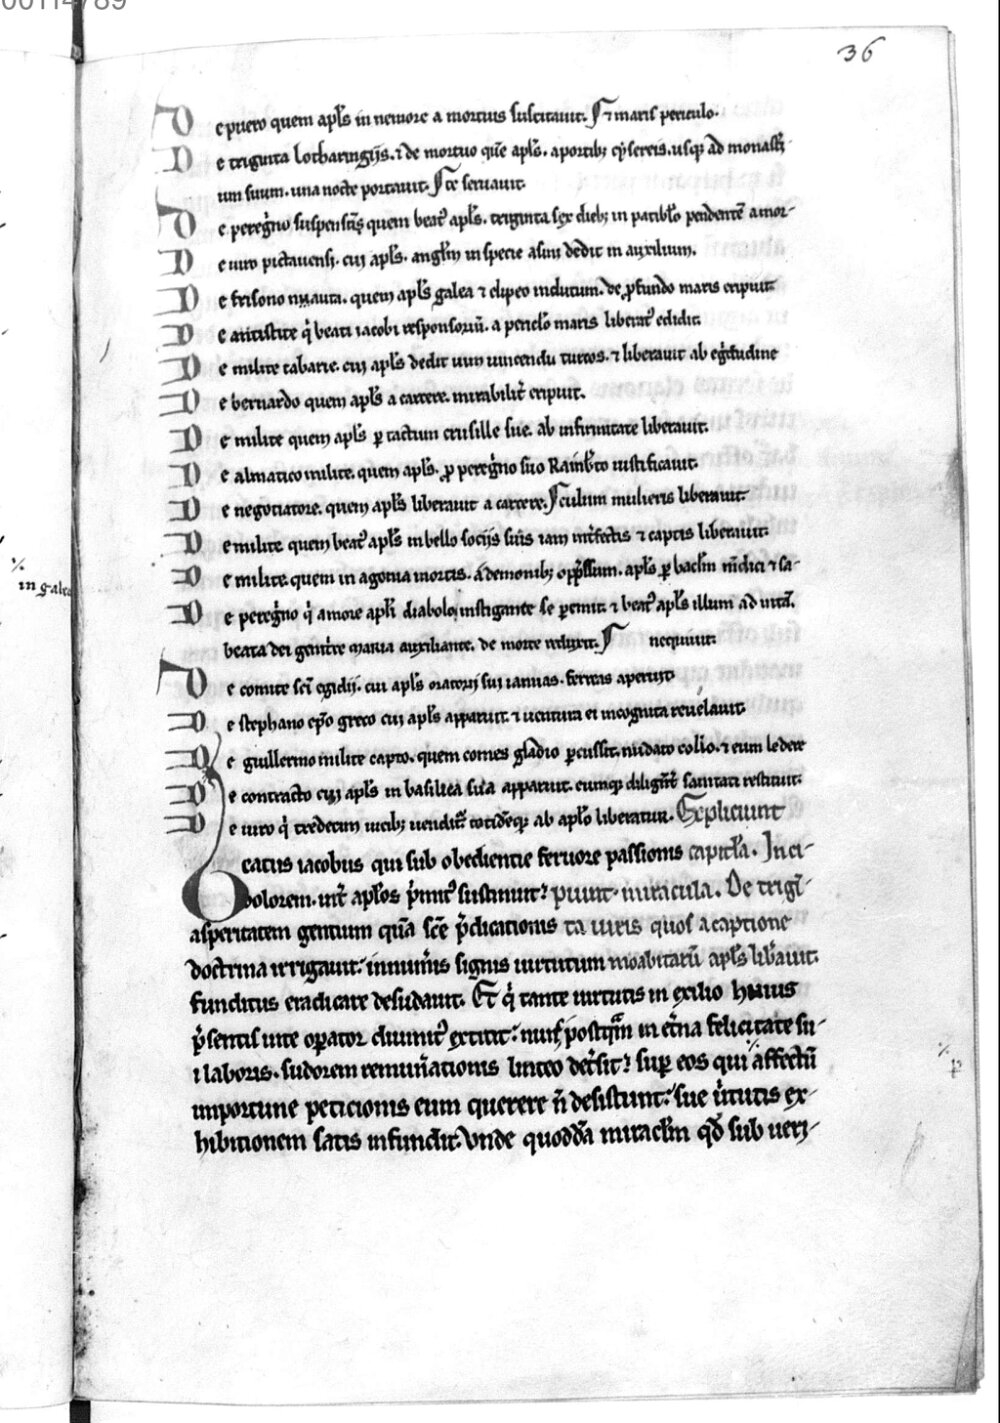 36
De puero quem apl̄s in nemore a mortuis suscitauit. ⁊ maris periculo.
De triginta lotharingijs. ⁊ de mortuo quē apl̄s. a portib; cysereis. usq; ad monast̄i-
um suum. una nocte portauit. te seruauit.
De peregͥno suspenso quem beatꝰ apl̄s. triginta sex dieb; in patibl̓o pendentē a mor-
De uiro pictauensi. cui apl̄s. angl̄m in specie asini dedit in auxilium.
De frisono nauta. quem apl̄s galea ⁊ clipeo indutum. de ꝓfundo maris eripuit.
De antistite qͥ beati iacobi responsoriū. a pericl̓o maris liberatꝰ edidit.
De milite tabarie. cui apl̄s dedit uim uincendi turcos. ⁊ liberauit ab egͥtudine
De bernardo quem apl̄s a carcere. mirabilit̄ eripuit.
De milite quem apl̄s ꝑ tactum crusille sue. ab infirmitate liberauit.
De almatico milite. quem apl̄s. ꝓ peregͥno suo Raimb̓to iustificauit.
De negotiatore. quem apl̄s liberauit a carcere. culum mulieris liberauit.
De milite quem beatꝰ apl̄s in bello socijs suis iam int̓fectis ⁊ captis liberauit.
De milite. quem in agonia mortis. a demonib; opp̄ssum. apl̄s ꝑ bacl̄m mēdici ⁊ sa-
De peregͥno qͥ amore apl̓i diabolo instigante se ꝑemit ⁊ beatꝰ apl̄s illum ad uitā.
beata dei genit̓ce maria auxiliante. de morte reduxit. nequiuit.
De comite sc̄i egidij. cui apl̄s oratorij sui ianuas. ferreas aperuit
De stephano ep̄o greco cui apl̄s apparuit. ⁊ uentura ei incognita reuelauit.
De guillermo milite capto. quem comes gladio ꝑcussit. nudato collo. ⁊ eum ledere
De contracto cui apl̄s in basilica sua apparuit. eumq; diligēt̓ sanitati restituit.
De uiro qͥ tredecim uicib; uenditꝰ totidēq; ab apl̓o liberatur. Expliciunt
Beatus iacobus qui sub obedientie feruore passionis capitl̓a. Inci-
dolorem. int̓ apl̄os pͥmitꝰ sustinuit? piunt. miracula. De trigī-
asperitatem gentium quā scē p̄dicationis ta uiris quos a captione
doctrina irrigauit. innum̄is signis uirtutum moabitarū apl̄s lib̓auit.
funditus eradicare desudauit. Et qͥ tante uirtutis in exilio huius
p̄sentis uite oꝑator diuinitꝰ extitit: nunc postqͣm in et̓na felicitate su-
i laboris. sudorem remun̓ationis linteo det̓sit? suꝑ eos qui affectū
inportune peticionis eum querere n̄ desistunt: sue ū̓tutis ex-
hibitionem satis infundit. Vnde quoddā miracl̄m qd̄ sub ueri-
in galea